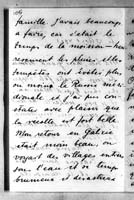 famille j'avais beaucoup
à faire, car c'était le
temps de la moisson - heu
reusement les pluies et les
tempêtes ont été plus
ou moins la Russie mé
ridionale et j'ai pu con
stater avec plaisir que
la récolte est fort belle.
Mon retour en Galicie
était moins beau, on
voyait des villages entiers
sous l'eau et un temps
brumeux et désastreux